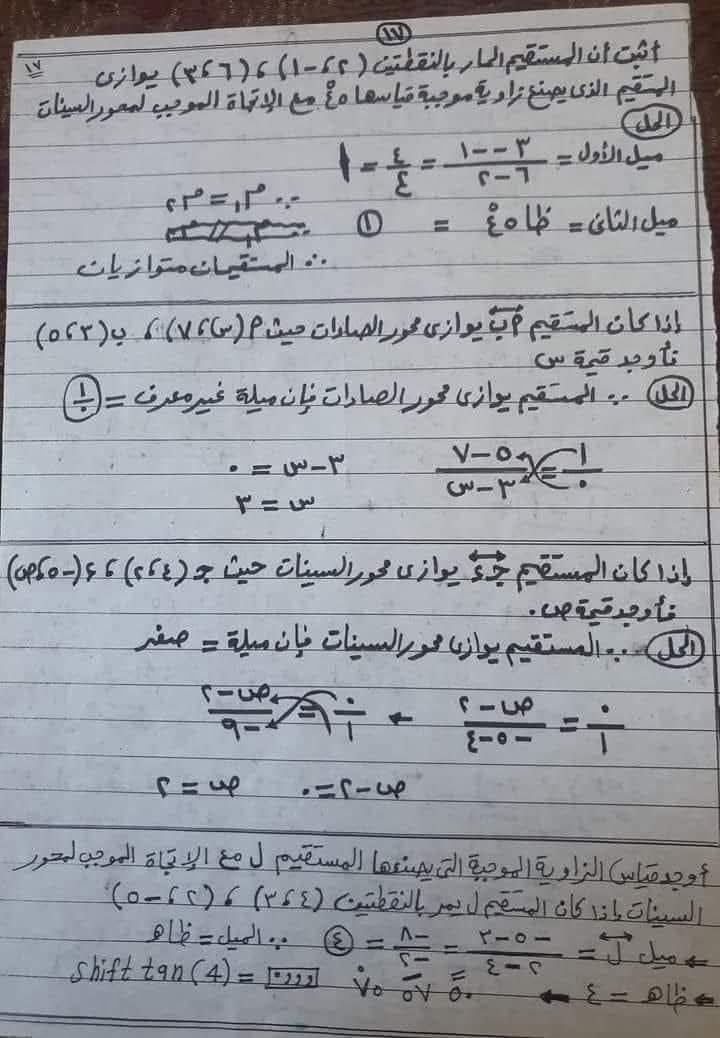 ١٧
١٧
أثبت أن المستقيم المار بالنقطتين (٢، -١) ، (٦، ٣) يوازى
المستقيم الذى يصنع زاوية موجبة قياسها ٤٥° مع الإتجاة الموجب لمحور السينات
الحل
ميل الأول = (٣ - -١)/(٦ - ٢) = ٤/٤ = ١
∵ م١ = م٢
ميل الثانى = ظا ٤٥° = ١
∴ المستقيمان متوازيان
إذا كان المستقيم أب يوازى محور الصادات حيث أ (س، ٧) ، ب (٣، ٥)
فأوجد قيمة س
الحل ∵ المستقيم يوازى محور الصادات فإن ميلة غير معرف = ١/٠
١/٠ = (٥ - ٧)/(٣ - س)
٣ - س = ٠
س = ٣
إذا كان المستقيم جـ ء يوازى محور السينات حيث جـ (٤، ٢) ، ء (-٥، ص)
فأوجد قيمة ص.
الحل ∵ المستقيم يوازى محور السينات فإن ميلة = صفر
٠/١ = (ص - ٢)/(-٥ - ٤) ← ٠/١ = (ص - ٢)/-٩
ص - ٢ = ٠ ص = ٢
أوجد قياس الزاوية الموجبة التى يصنعها المستقيم ل مع الإتجاة الموجب لمحور
السينات إذا كان المستقيم ل يمر بالنقطتين (٤، ٣) ، (٢، -٥)
← ميل ل = (-٥ - ٣)/(٢ - ٤) = -٨/-٢ = ٤ ∵ الميل = ظا هـ
← ظا هـ = ٤ ← ٥٠ ٥٧ ٧٥° shift tan (4) =